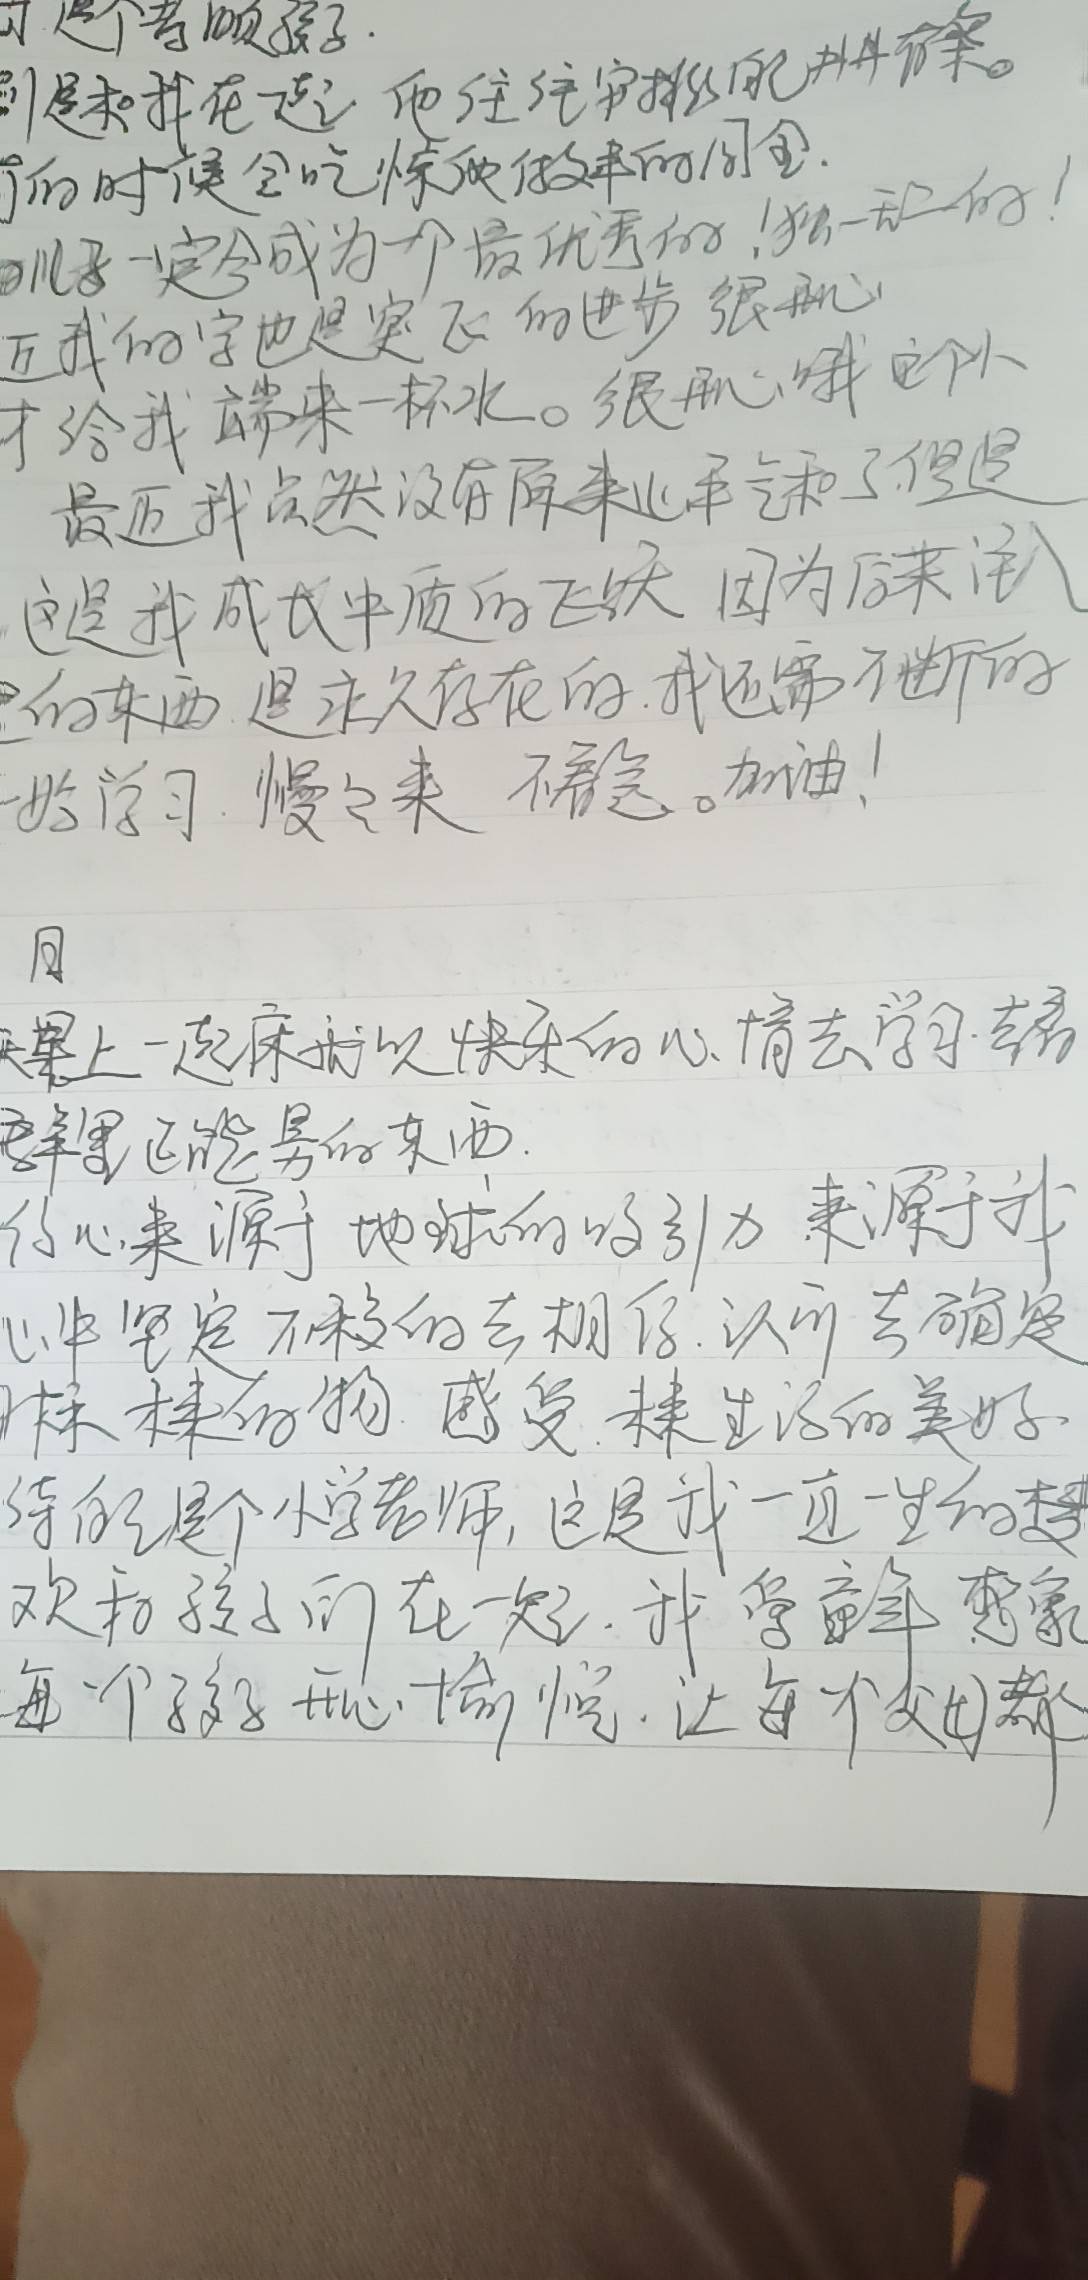 是个孝顺孩子.
是和我在一起 他往往安排的井井有条。
的时候会吃惊他做事的周全.
儿子一定会成为一个最优秀的!独一无二的!
近我的字也是突飞的进步 很开心
才给我端来一杯水。很开心哦 这个小
最近我虽然没有原来心平气和了但是
这是我成长中质的飞跃 因为后来注入
的东西 是永久存在的.我还需不断的
学习.慢々来 不着急。加油!
月
早上一起床我以快乐的心情去学习.去看
群里正能量的东西.
信心来源于地球的吸引力 来源于我
心中坚定不移的去相信.认可 去确定
的物.感受.生活的美好.
待的是个小学老师,这是我一直一生的梦
欢和孩子们在一起.我学童年 想象
每一个孩子开心愉悦.让每个父母都